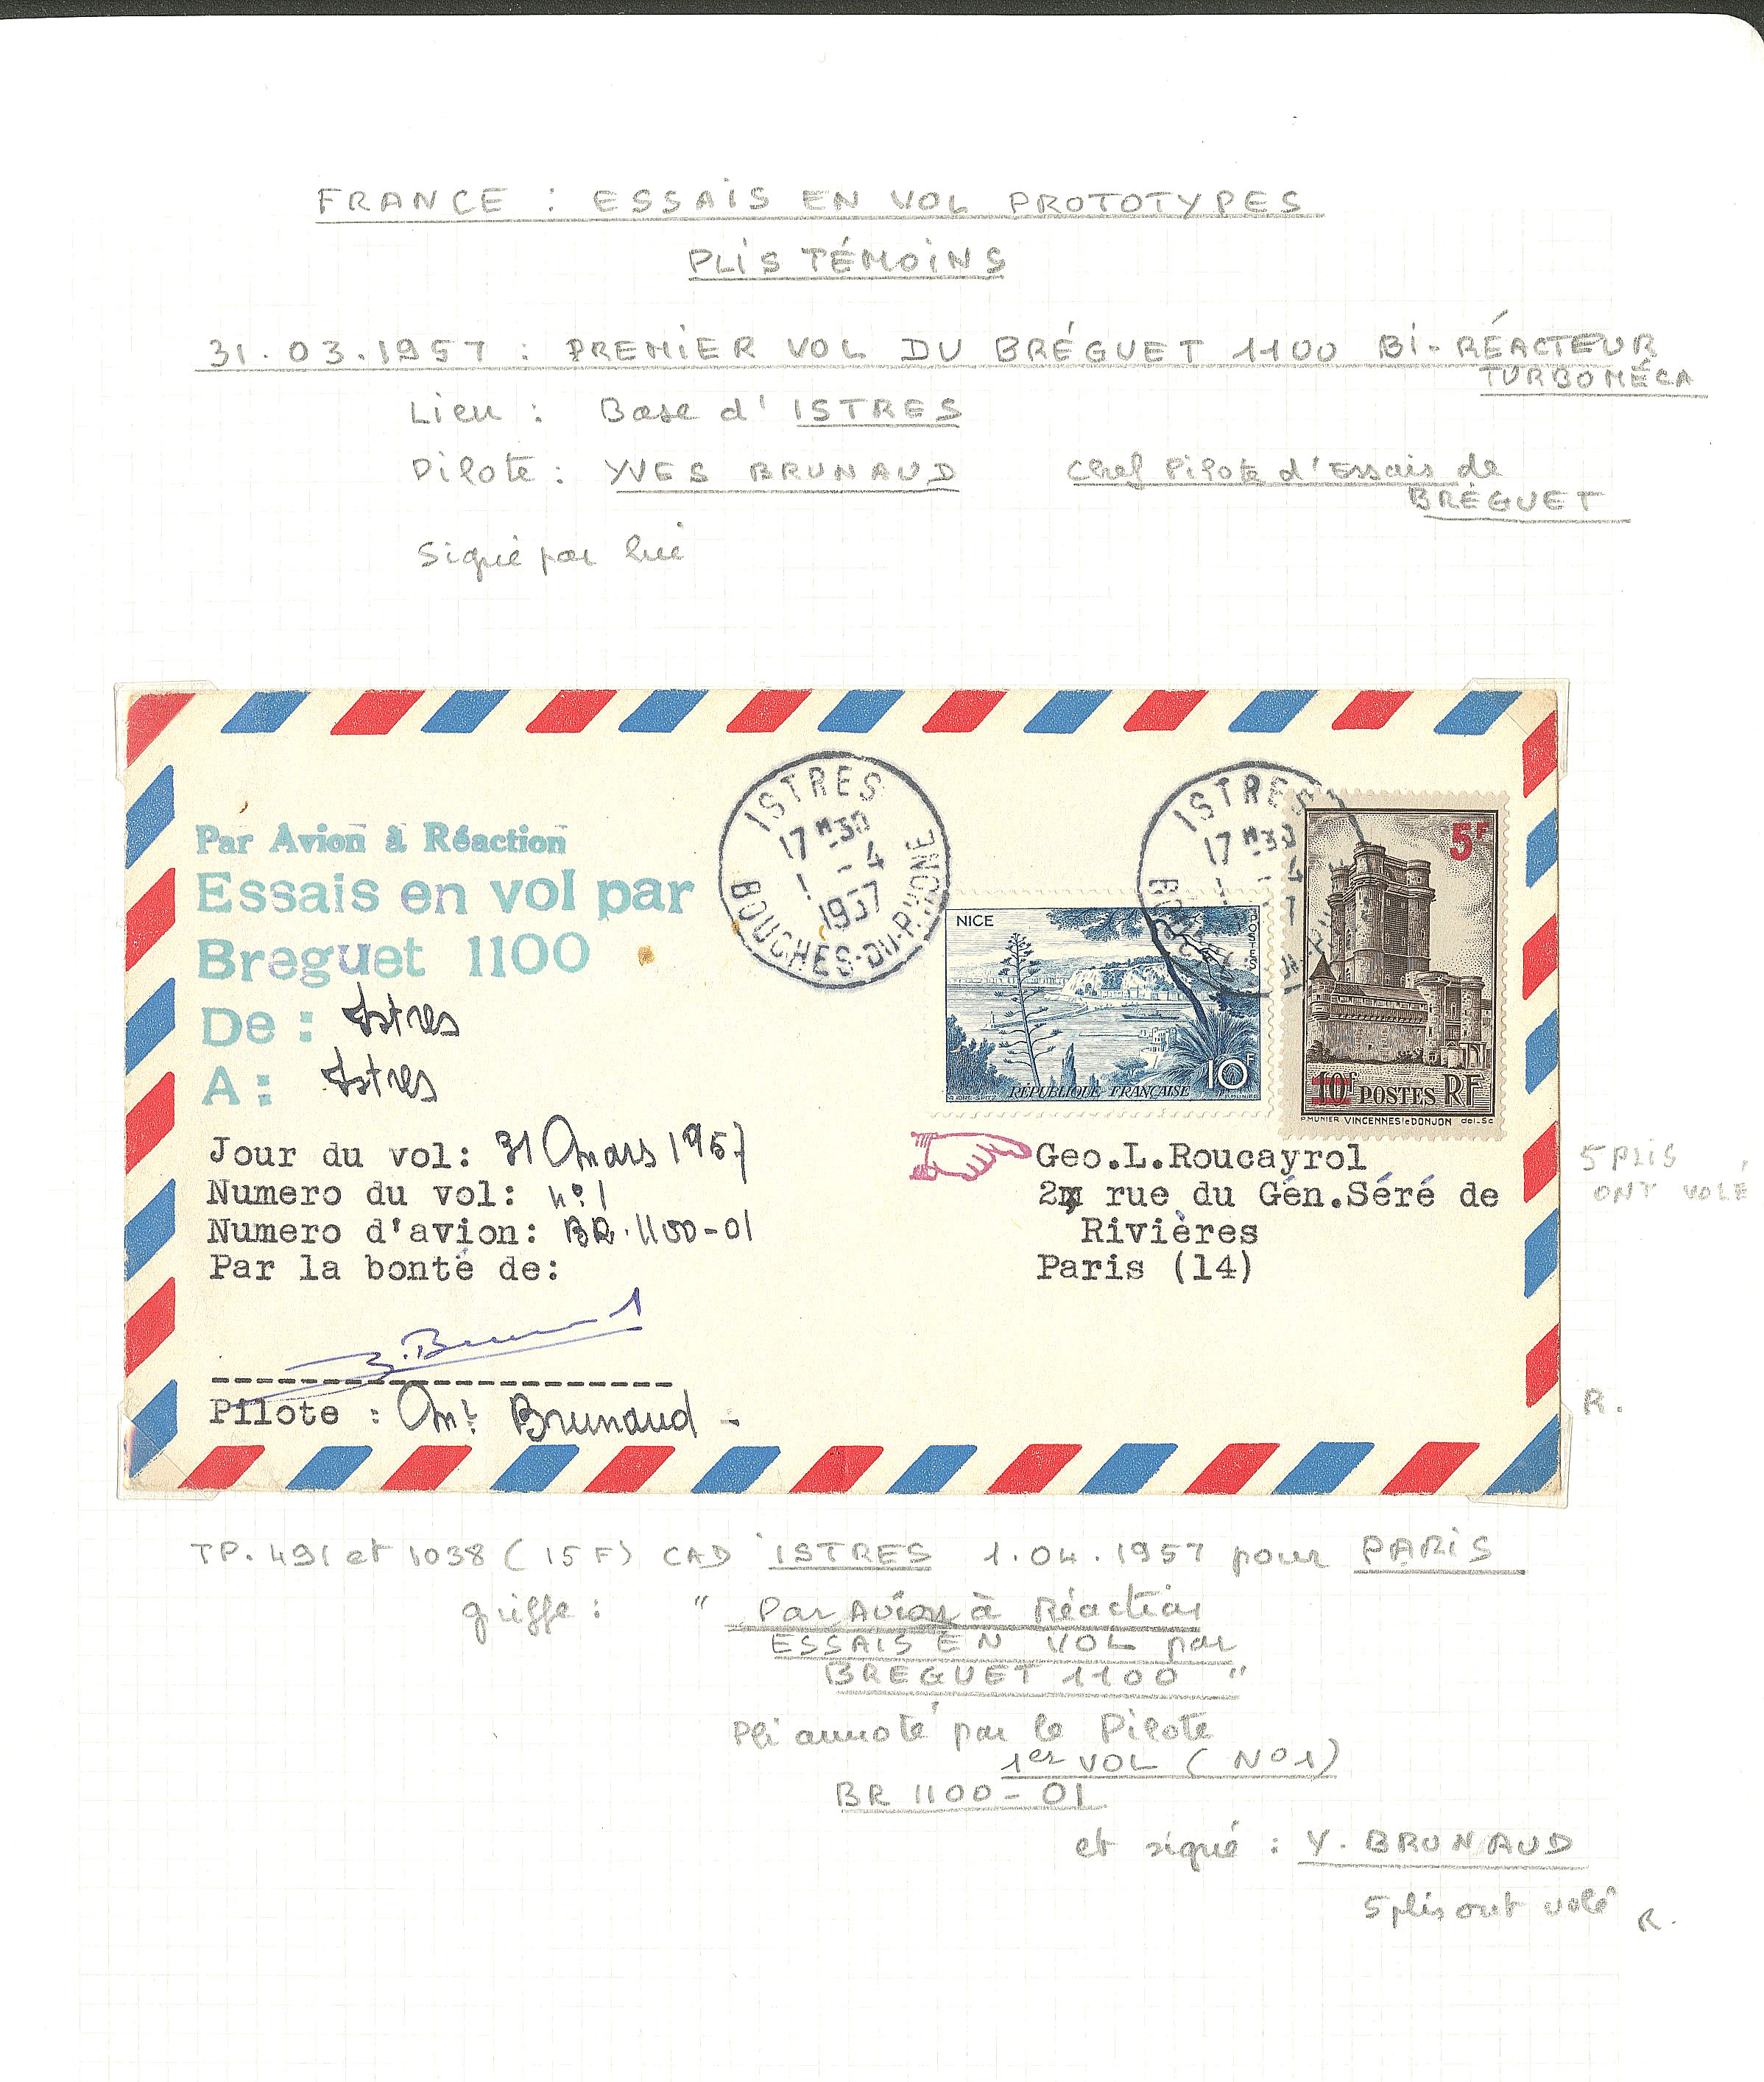 FRANCE : ESSAIS EN VOL PROTOTYPES
PLIS TÉMOINS
31.03.1957 : PREMIER VOL DU BRÉGUET 1100 BI-RÉACTEUR
TURBOMÉCA
Lieu : Base d'ISTRES
Pilote : YVES BRUNAUD Chef Pilote d'Essais de
BRÉGUET
Signé par lui
ISTRES
17 H 30
1 - 4
1957
BOUCHES-DU-RHONE
ISTRES
17 H 30
Par Avion à Réaction
Essais en vol par
Breguet 1100
De : Istres
A : Istres
NICE
POSTES
10F
RÉPUBLIQUE FRANÇAISE
5F
10f POSTES RF
P.MUNIER VINCENNES le DONJON del-Sc
Jour du vol: 31 mars 1957
Numero du vol: n°1
Numero d'avion: BR.1100-01
Par la bonté de:
Y. Brunaud
Pilote : Mr Brunaud -
Geo.L.Roucayrol
2 rue du Gén.Séré de
Rivières
Paris (14)
5 PLIS
ONT VOLÉ
R.
TP. 491 et 1038 (15F) CAD ISTRES 1.04.1957 pour PARIS
griffe : " Par Avion à Réaction
ESSAIS EN VOL par
BREGUET 1100 "
Pli annoté par le Pilote
1er VOL (N°1)
BR 1100-01
et signé : Y. BRUNAUD
5 plis ont volé R.